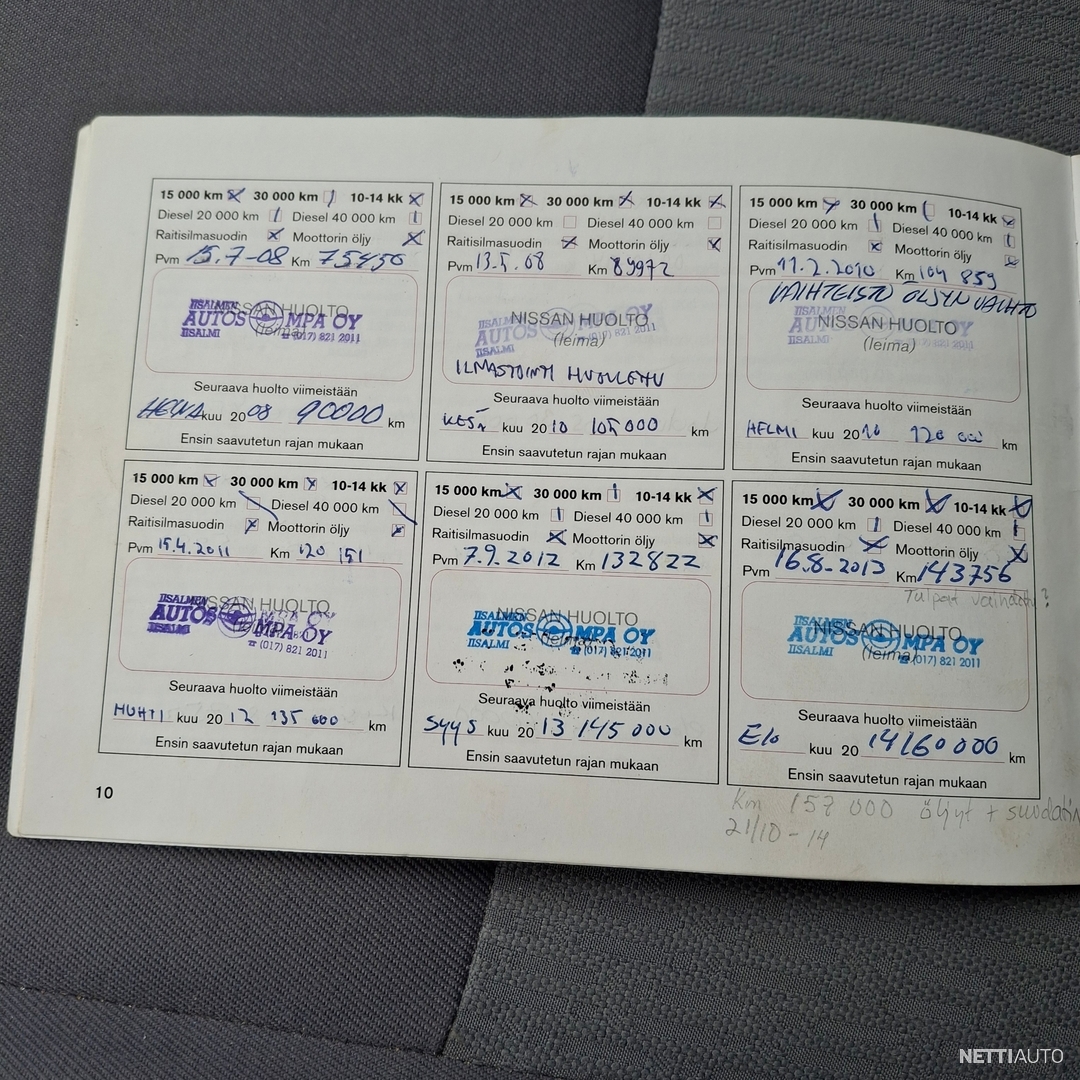 15 000 km 30 000 km 10-14 kk
Diesel 20 000 km Diesel 40 000 km
Raitisilmasuodin Moottorin öljy
Pvm 15.7-08 Km 75450
NISSAN HUOLTO
(leima)
IISALMEN
AUTOS MPA OY
IISALMI ☎ (017) 821 2011
Seuraava huolto viimeistään
kuu 2008 90000 km
Ensin saavutetun rajan mukaan
15 000 km 30 000 km 10-14 kk
Diesel 20 000 km Diesel 40 000 km
Raitisilmasuodin Moottorin öljy
Pvm 13.5.08 Km 89972
NISSAN HUOLTO
(leima)
AUTOS MPA OY
IISALMI (017) 821 2011
ILMASTOINTI HUOLLETTU
Seuraava huolto viimeistään
KESÄ kuu 2010 105000 km
Ensin saavutetun rajan mukaan
15 000 km 30 000 km 10-14 kk
Diesel 20 000 km Diesel 40 000 km
Raitisilmasuodin Moottorin öljy
Pvm 11.2.2010 Km 104 859
VAIHTEISTO ÖLJYN VAIHTO
NISSAN HUOLTO
(leima)
AUTOS MPA OY
IISALMI (017) 821 2011
Seuraava huolto viimeistään
HELMI kuu 20 120 000 km
Ensin saavutetun rajan mukaan
15 000 km 30 000 km 10-14 kk
Diesel 20 000 km Diesel 40 000 km
Raitisilmasuodin Moottorin öljy
Pvm 15.4.2011 Km 120 151
NISSAN HUOLTO
IISALMEN
AUTOS MPA OY
IISALMI ☎ (017) 821 2011
Seuraava huolto viimeistään
HUHTI kuu 2012 135 000 km
Ensin saavutetun rajan mukaan
15 000 km 30 000 km 10-14 kk
Diesel 20 000 km Diesel 40 000 km
Raitisilmasuodin Moottorin öljy
Pvm 7.9.2012 Km 132822
NISSAN HUOLTO
(leima)
IISALMEN
AUTOS MPA OY
IISALMI ☎ (017) 821 2011
Seuraava huolto viimeistään
Syys kuu 2013 145 000 km
Ensin saavutetun rajan mukaan
15 000 km 30 000 km 10-14 kk
Diesel 20 000 km Diesel 40 000 km
Raitisilmasuodin Moottorin öljy
Pvm 16.8-2013 Km 143756
Tulpat vaihdettu?
NISSAN HUOLTO
(leima)
IISALMEN
AUTOS MPA OY
IISALMI ☎ (017) 821 2011
Seuraava huolto viimeistään
Elo kuu 2014 160000 km
Ensin saavutetun rajan mukaan
10
Km 157 000 öljyt + suodatin
21/10-14
NETTIAUTO